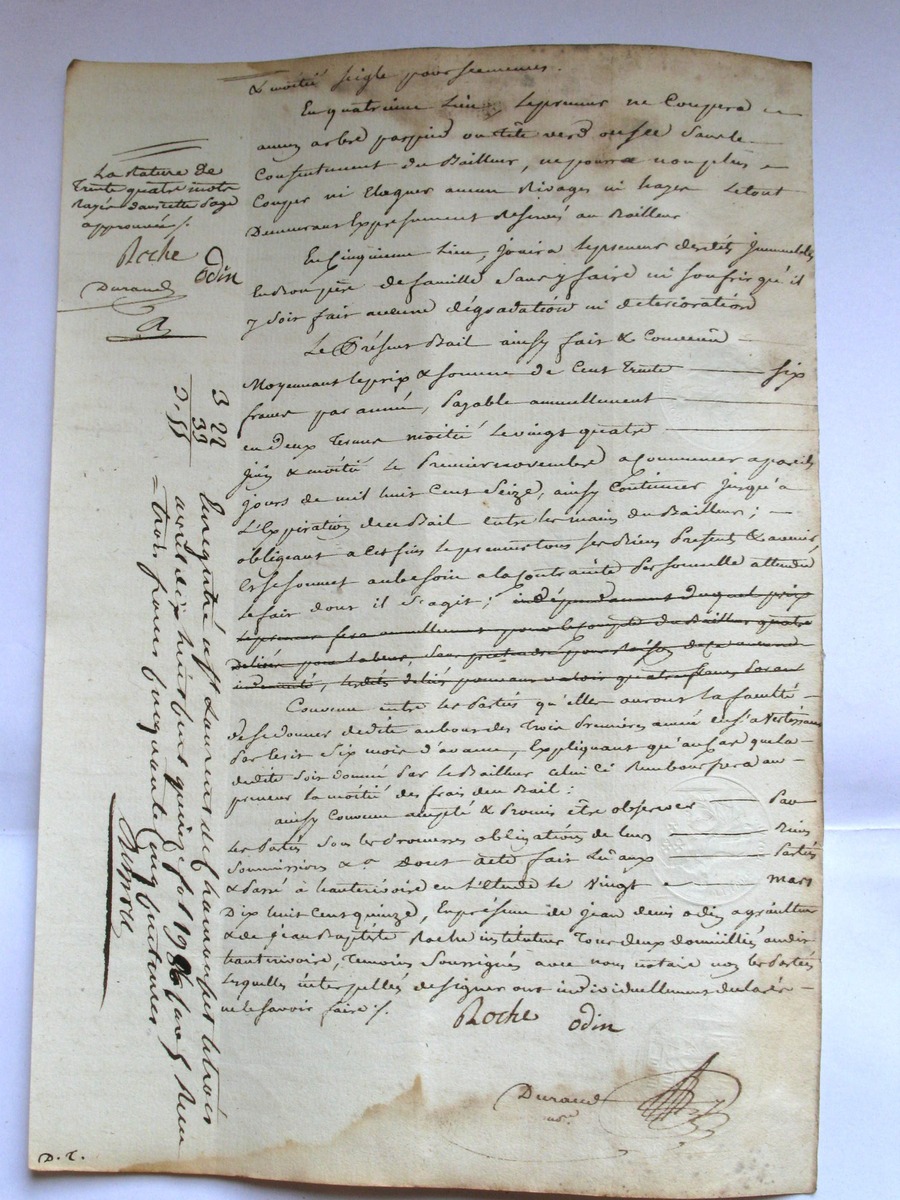 & moitié seigle pour semences.
En quatrieme Lieu, Le preneur ne Coupera
aucun arbre par pied ou tête verd ou sec Sans le
Consentement du Bailleur, ne pourra non plus
Couper ni Elaguer aucun Rivages ni hayes Le tout
Demeurant Expressement Reservé au Bailleur
En Cinquieme Lieu, jouira Le preneur desdits Immeubles
En Bon père de famille Sans y faire ni Soufrir qu'il
y Soit fait aucune dégradation ni deterioration
Le Présent Bail ainsy fait & Convenu
Moyennant le prix & Somme de Cent Trente Six
francs par année, Payable annuellement
en deux Termes moitié Le vingt quatre
juin & moitié Le Premier novembre a Commencer a pareils
jours de mil huit Cent Seize, ainsy Continuer jusqu'a
L'Expiration du Bail entre les mains du Bailleur ;
obligeant a cet fins le preneur tous Ses Biens Present & avenir,
Et Se Soumet au besoin a la Contrainte Personnelle attendu
le fait dont il S'agit ; indépendamment duquel prix
Le preneur fera annuellement pour le Compte du Bailleur quatre
Sans pretendre pour raison de ce aucune
indemnité, Lesdits
Convenu entre Les Parties qu'Elles auront la faculté
de Se donner dedite au bout des Trois Premières année en S'avertissant
Par Ecrit Six mois d'avance, Expliquant qu'au Cas que la
dedite Soit donnée Par le Bailleur Celui Ci Remboursera au
preneur la moitié des frais du Bail :
ainsy Convenu accepté & Promis être observer Par
les Parties Sous les Promesses obligations de leurs Biens
Soumissions & ca Dont acte fait Lu aux Parties
& Passé à hauterivoire en L'étude Le Vingt mars
Dix huit Cent quinze, En présence de jean denis odin agriculteur
& de Jean Baptiste Roche instituteur Tous deux domiciliés audit
hauterivoire, Temoins Soussignés avec nous notaire non les Parties
Lesquelles interpellés de signer ont individuellement declarés
ne le Savoir faire /.
Roche odin
Durand
no.re
La Rature de
Trente quatre mots
Rayés dans cette Page
approuvée /.
Roche odin
Durand
3 22
33
3. 55
Enregistré a St Laurent de Chamousset le trois
avril dix huit cent quinze fol 198 Case 5 Recu
trois francs Cinquante Cinq centimes
D. T.